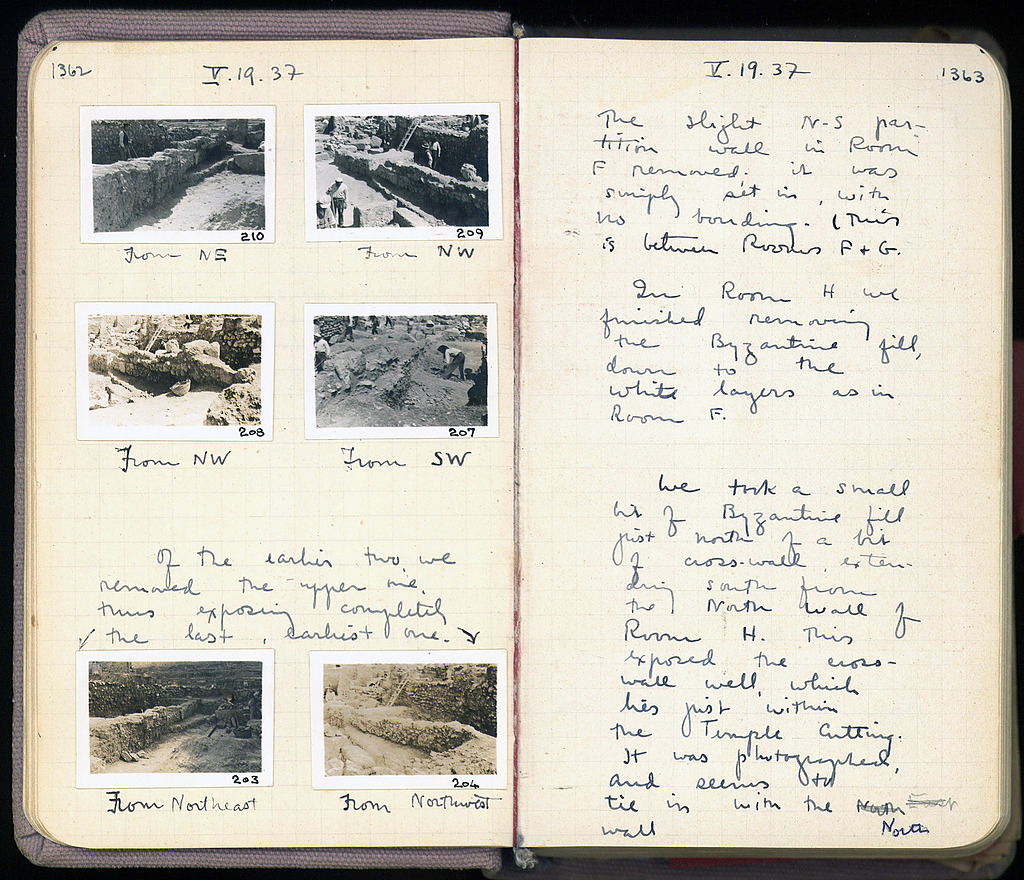 1362
V.19.37
210
209
From NE
From NW
208
207
From NW
From SW
Of the earlier two, we
removed the upper one,
thus exposing completely
the last, earliest one.
203
204
From Northeast
From Northwest
V.19.37
1363
The slight N-S par-
tition wall in Room
F removed; it was
simply set in, with
no bonding. (This
is between Rooms F + G.
In Room H we
finished removing
the Byzantine fill,
down to the
white layers as in
Room F.
We took a small
bit of Byzantine fill
just north of a bit
of cross-wall exten-
ding south from
the North wall of
Room H. This
exposed the cross-
wall well, which
lies just within
the Temple Cutting.
It was photographed,
and seems to
tie in with the North East
wall North